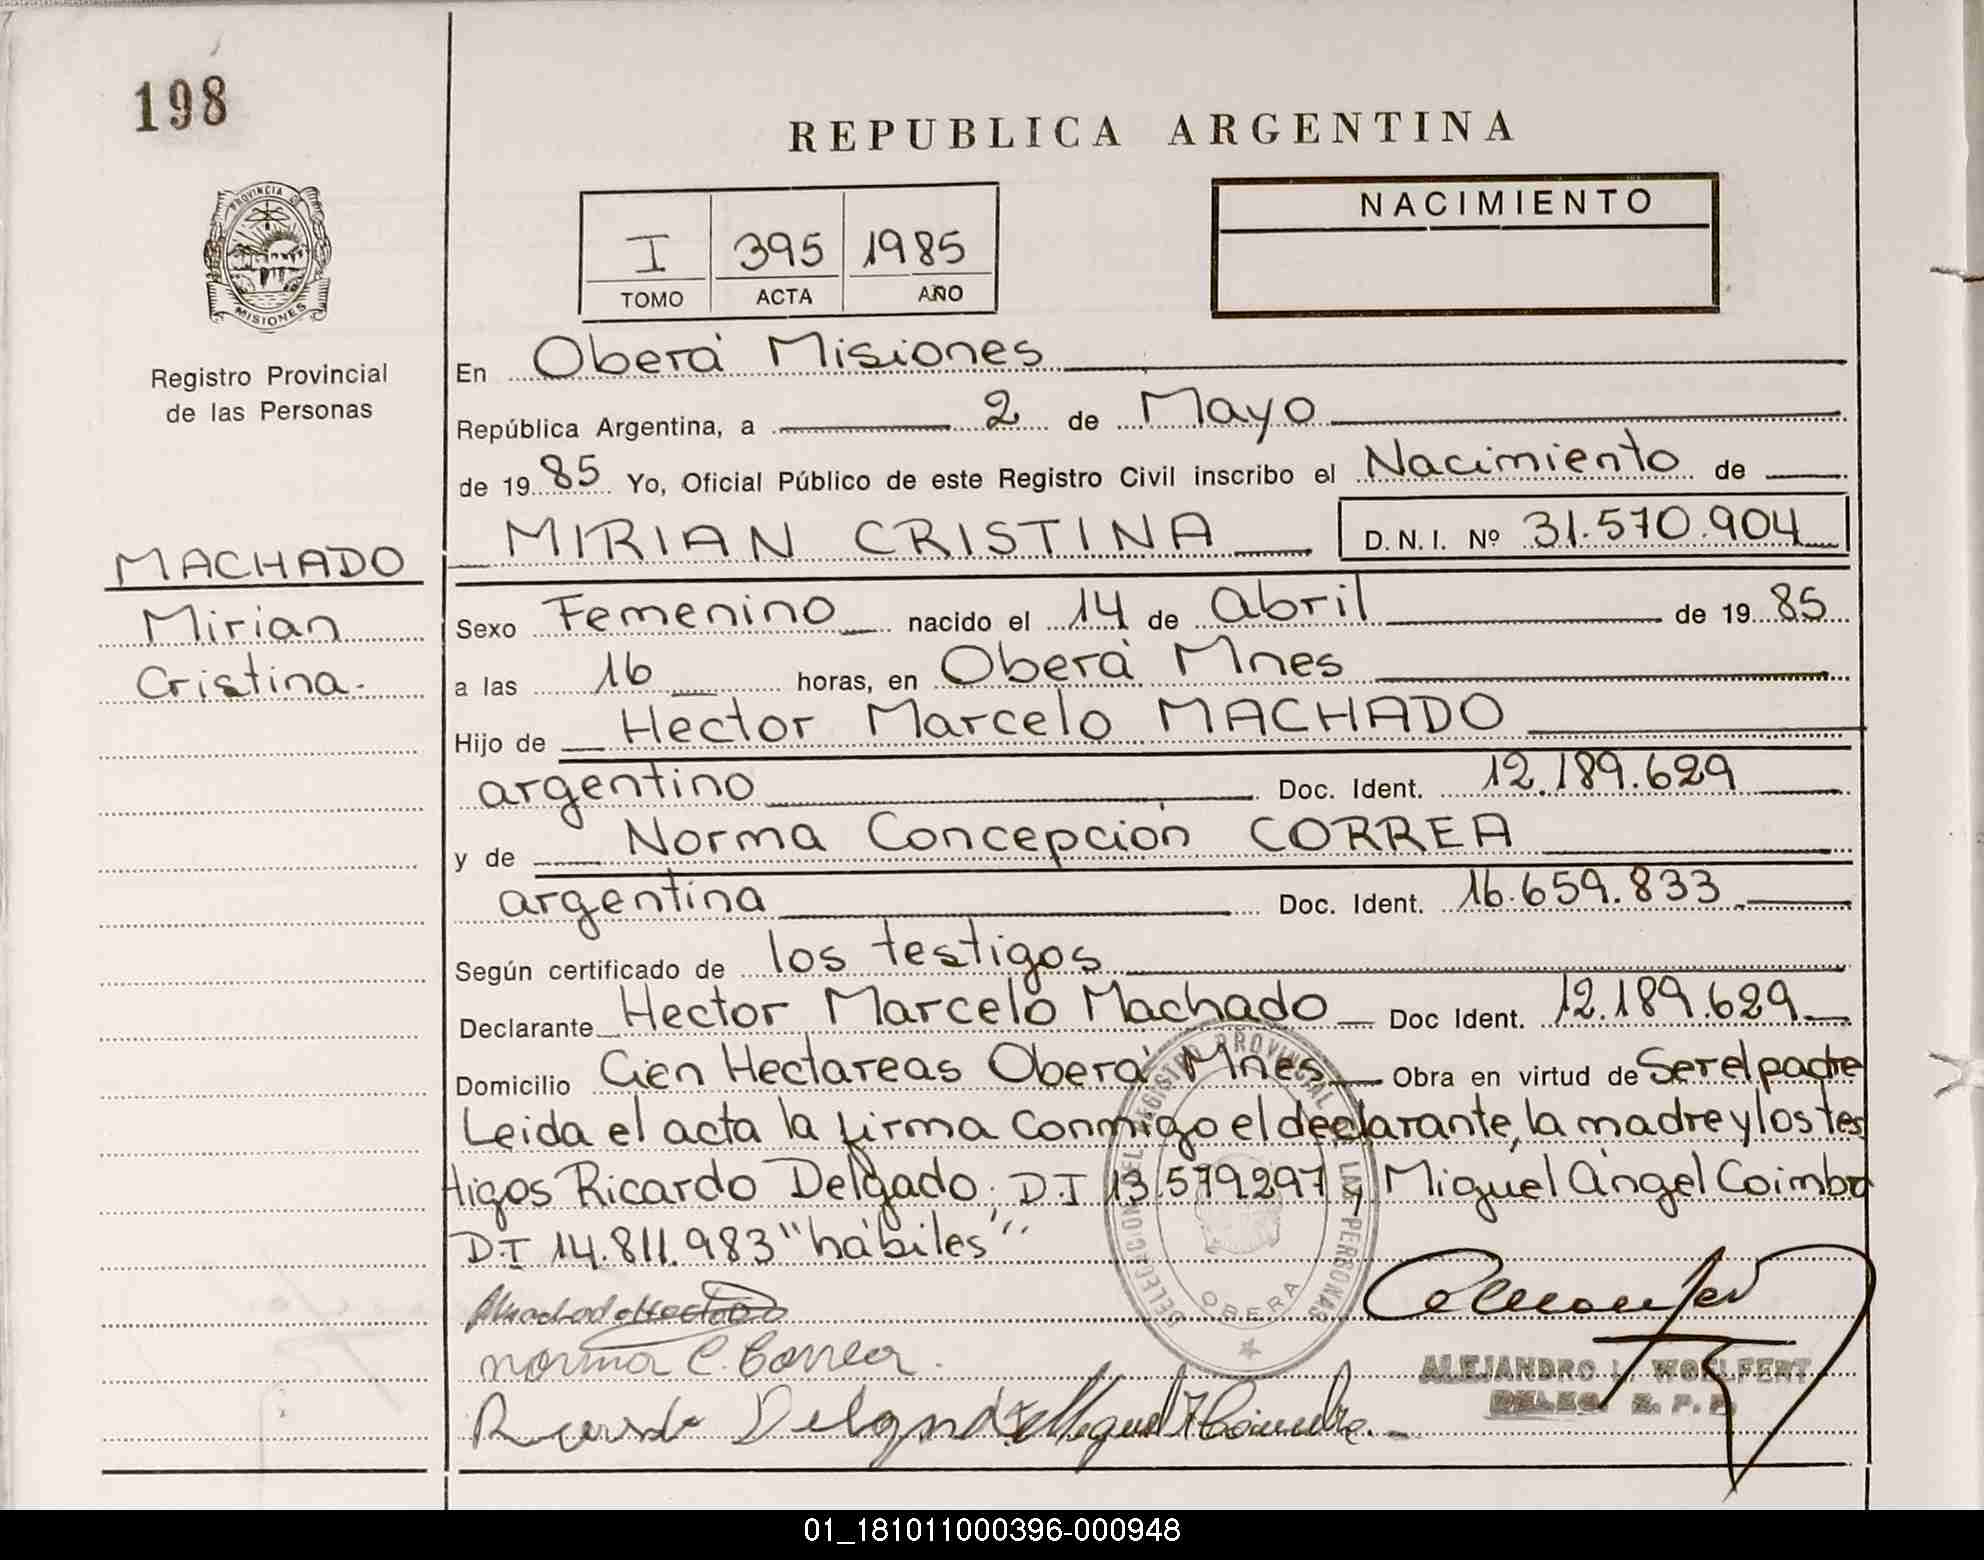 198
REPUBLICA ARGENTINA
PROVINCIA DE
MISIONES
Registro Provincial
de las Personas
NACIMIENTO
I 395 1985
TOMO ACTA AÑO
En Oberá Misiones
República Argentina, a 2 de Mayo
de 1985 Yo, Oficial Público de este Registro Civil inscribo el Nacimiento de
MIRIAN CRISTINA D.N.I. Nº 31.570.904
MACHADO
Mirian
Cristina.
Sexo Femenino nacido el 14 de abril de 1985
a las 16 horas, en Oberá Mnes
Hijo de Hector Marcelo MACHADO
argentino Doc. Ident. 12.189.629
y de Norma Concepción CORREA
argentina Doc. Ident. 16.659.833
Según certificado de los testigos
Declarante Hector Marcelo Machado Doc Ident. 12.189.629
Domicilio Cien Hectareas Oberá Mnes Obra en virtud de Ser el padre
Leida el acta la firma conmigo el declarante, la madre y los tes
tigos Ricardo Delgado. D.I 13.579.297 y Miguel Angel Coimbra
D.I 14.811.983 "hábiles".
DELEGACION DEL REGISTRO PROVINCIAL DE LAS PERSONAS
OBERA
Machado Hector
Norma C. Correa.
Ricardo Delgado Miguel A Coimbra.
ALEJANDRO L. WOELFERT
DELEG. R. P. P.
01_181011000396-000948